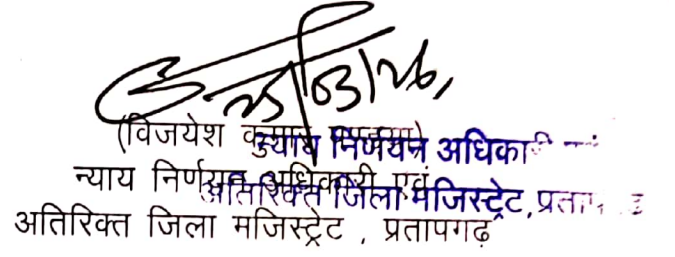 (विजयेश कुमार
न्याय निर्णयन अधिकारी एवं
अतिरिक्त जिला मजिस्ट्रेट , प्रतापगढ़
न्याय निर्णयन अधिकारी
अतिरिक्त जिला मजिस्ट्रेट, प्रतापगढ़